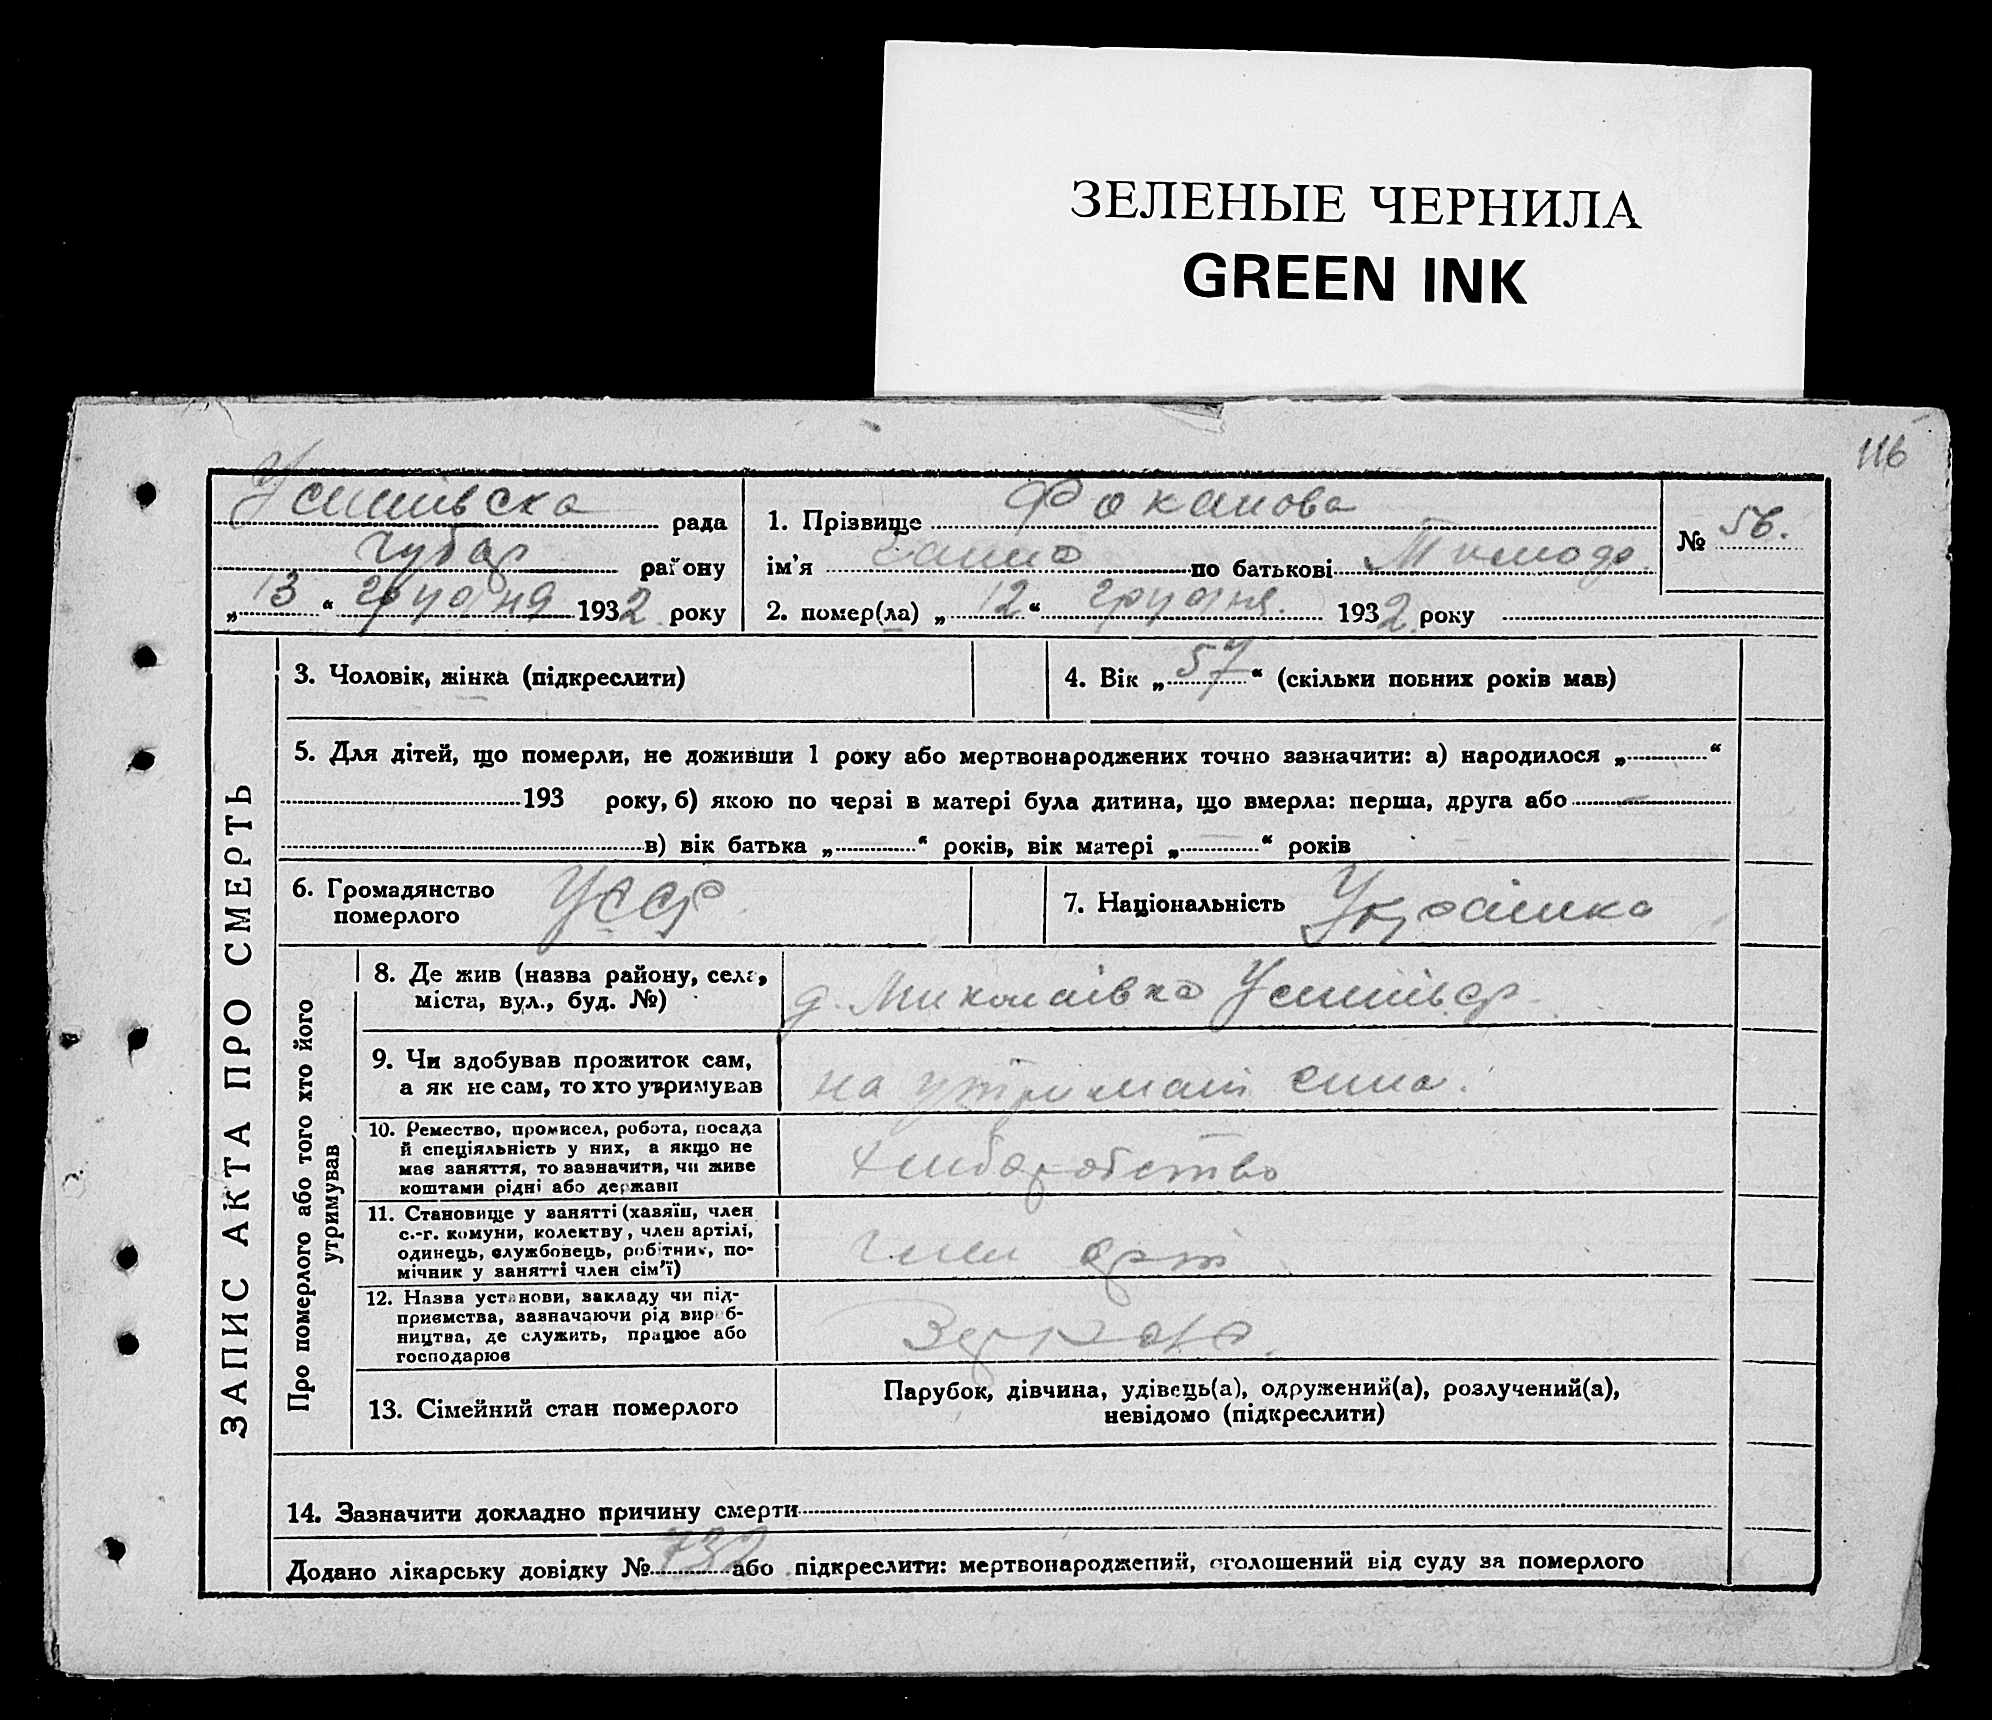 ЗЕЛЕНЫЕ ЧЕРНИЛА
GREEN INK
116
рада
району
„13“ грудня 1932 року
1. Прізвище Фоканова
ім'я по батькові
2. помер(ла) „12“ грудня 1932 року
№ 56.
ЗАПИС АКТА ПРО СМЕРТЬ
3. Чоловік, жінка (підкреслити)
4. Вік „57“ (скільки повних років мав)
5. Для дітей, що померли, не доживши 1 року або мертвонароджених точно зазначити: а) народилося „ “
193 року, б) якою по черзі в матері була дитина, що вмерла: перша, друга або
в) вік батька „ “ років, вік матері „ “ років
6. Громадянство
померлого
УССР
7. Національність Українка
Про померлого або того хто його
утримував
8. Де жив (назва району, села,
міста, вул., буд. №)
д. Миколаївка
9. Чи здобував прожиток сам,
а як не сам, то хто утримував
на утримані сина.
10. Ремество, промисел, робота, посада
й спеціяльність у них, а якщо не
має заняття, то зазначити, чи живе
коштами рідні або держави
хліборобство
11. Становище у занятті (хазяїн, член
с.-г. комуни, колектву, член артілі,
одинець, службовець, робітник, по-
мічник у занятті член сім'ї)
член арт
12. Назва установи, закладу чи під-
приємства, зазначаючи рід вироб-
ництва, де служить, працює або
господарює
13. Сімейний стан померлого
Парубок, дівчина, удівець(а), одружений(а), розлучений(а),
невідомо (підкреслити)
14. Зазначити докладно причину смерти
Додано лікарську довідку № 732 або підкреслити: мертвонароджений, оголошений від суду за померлого